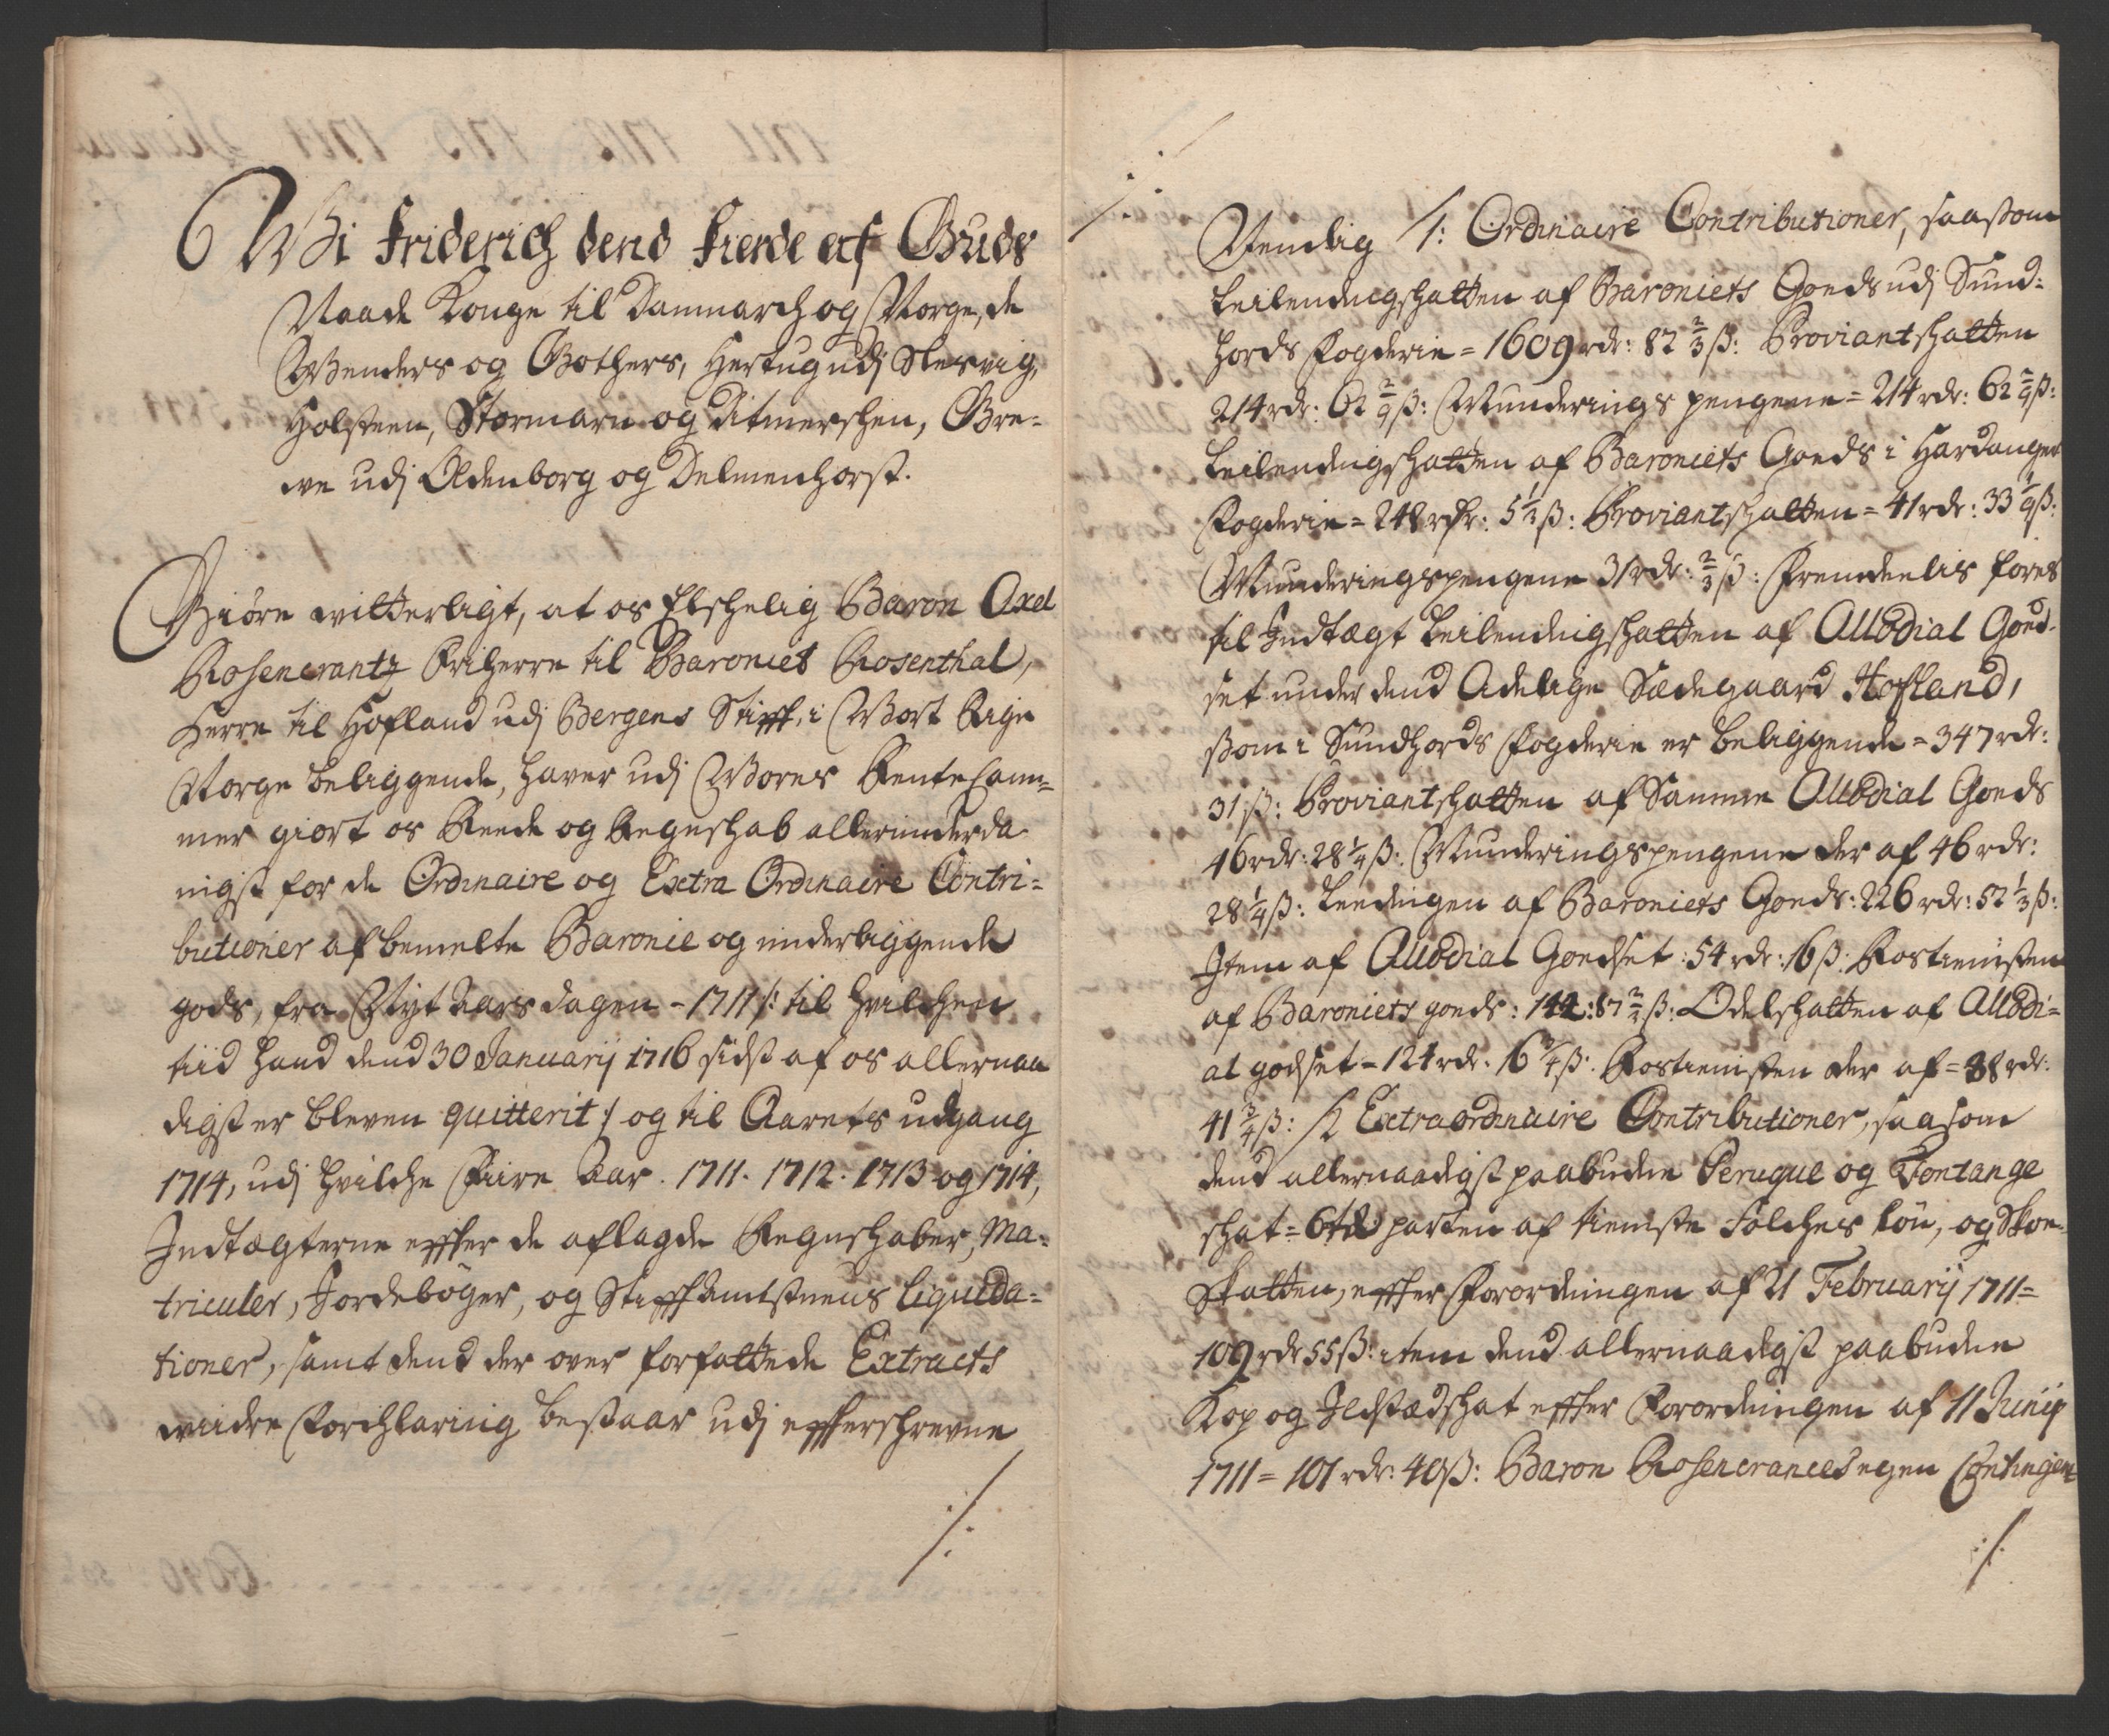 Wi Friderich dend Fierde af Guds
Naade Konge til Danmarch og Norge, de
Wenders og Gothers, Hertug udj Slesvig,
Holsteen, Stormarn og Ditmerschen, Gre-
we udj Oldenborg og Delmenhorst.
Giøre witterligt, at os Elschelig Baron Axel
Rosencrantz Friherre til Baroniet Rosenthal,
Herre til Hofland udj Bergens Stifft, i Wort Rige
Norge beliggende, haver udj Wores Rentecam-
mer giort os Reede og Regnschab allerunderda-
nigst for de Ordinaire og Extra Ordinaire Contri-
butioner af bemelte Baronie og underliggende
gods, fra Nyt Aars dagen - 1711 /: til hvilchen
tiid hand dend 30 Januarij 1716 sidst af os allernaa
digst er bleven quitterit :/ og til Aarets udgang
1714, udj hvilche Fiire Aar. 1711. 1712. 1713 og 1714,
Indtægterne effter de aflagde Regnschaber, Ma-
triculer, Jordebøger, og Stifftamtstuens liquida-
tioner, samt dend der over forfattede Extracts
widre Forchlaring bestaar udj effterschrevne
./.
./.
Nemlig /1: Ordinaire Contributioner, saasom
Leilendingschatten af Baroniets Goeds udj Sund-
hords Fogderie = 1609 rdr: 82 2/3 ß: Proviantschatten
214 rdr: 62 2/9 ß: Munderings pengene = 214 rdr: 62 2/9 ß:
Leilendingschatten af Baroniets Goeds i Hardanger
Fogderie = 248 rdr: 5 1/2 ß: Proviantschatten = 41 rdr: 33 1/9 ß:
Munderingspengene 31 rdr: 2/3 ß: Fremdeelis føres
til Indtægt Leilendingschatten af Allodial Goed-
set under dend Adelige Sædegaard Hofland,
som i Sundhords Fogderie er beliggende = 347 rdr:
31 ß: Proviantschatten af Samme Allodial Goeds
46 rdr: 28 1/4 ß. Munderingspengene der af 46 rdr:
28 1/4 ß: Leedingen af Baroniets Goeds: 226 rdr: 52 1/3 ß:
Item af Allodial Goedset: 54 rdr: 16 ß: Rostienisten
af Baroniets goeds: 144: 87 ß: Odelschatten af Allodi-
al godset = 124 rdr: 16 3/4 ß: Rostienisten der af = 38 rdr:
41 3/4 ß: /2 Extraordinaire Contributioner, saasom
dend allernaadigst paabudne Peruque og Fontange
schat = 6te parten af tieniste Folches løn, og Skoe-
Skatten, effter Forordningen af 21 Februarij 1711 =
109 rdr 55 ß: item dend allernaadigst paabudne
Kop og Ildstædschat effter Forordningen af 11 Junij
1711 = 101 rdr: 40 ß: Baron Rosencrantzes egen Contingent
./.